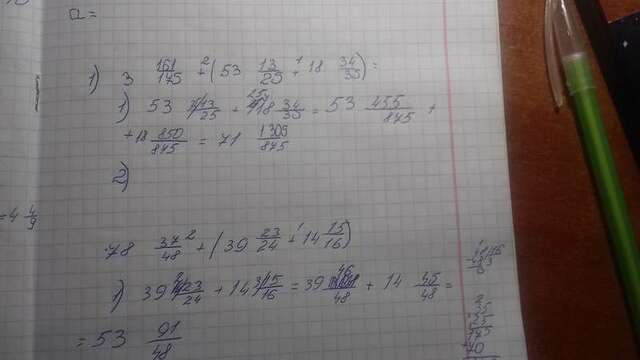 a =
1) 3 161/175 + (53 13/25 + 18 34/35) =
1) 53 13/25 + 18 34/35 = 53 455/875 +
+ 18 850/875 = 71 1305/875
2)
= 4 4/9
78 37/48 + (39 23/24 + 14 15/16)
1) 39 23/24 + 14 15/16 = 39 46/48 + 14 45/48 =
= 53 91/48